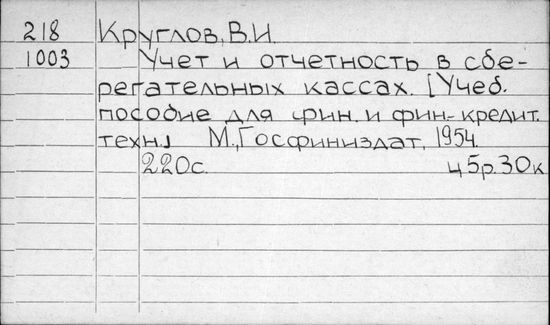 218 Круглов, В.И.
1003 Учет и отчетность в сбе-
регательных кассах. [Учеб.
пособие для фин. и фин.-кредит.
техн.] М., Госфиниздат, 1954.
220с. ц 5р. 30к